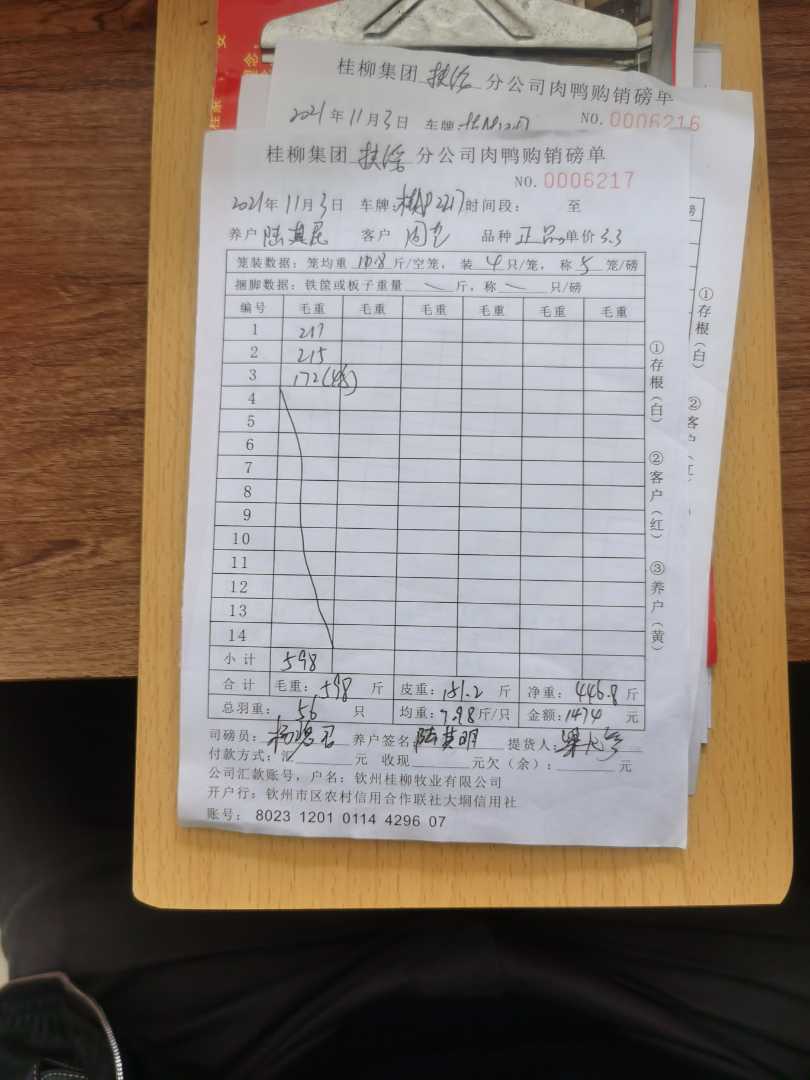 桂柳集团 分公司肉鸭购销磅单
2021年11月3日 车牌:
NO. 0006216
桂柳集团 分公司肉鸭购销磅单
NO. 0006217
2021年11月3日 车牌: 2217 时间段: 至
养户 陆其 客户 周 品种 正品 单价 3.3
笼装数据: 笼均重 10.8 斤/空笼, 装 4 只/笼, 称 5 笼/磅
捆脚数据: 铁筐或板子重量 斤, 称 只/磅
编号 毛重 毛重 毛重 毛重 毛重 毛重
1 217
2 215
3 172(4)
4
5
6
7
8
9
10
11
12
13
14
小计 598
合计 毛重: 598 斤 皮重: 151.2 斤 净重: 446.8 斤
总羽重: 56 只 均重: 7.98 斤/只 金额: 1474 元
司磅员: 杨 养户签名: 陆其明 提货人: 梁
付款方式: 汇 元 收现 元欠(余): 元
公司汇款账号, 户名: 钦州桂柳牧业有限公司
开户行: 钦州市区农村信用合作联社大垌信用社
账号: 8023 1201 0114 4296 07
①存根(白) ②客户(红) ③养户(黄)
①存根(白) ②客